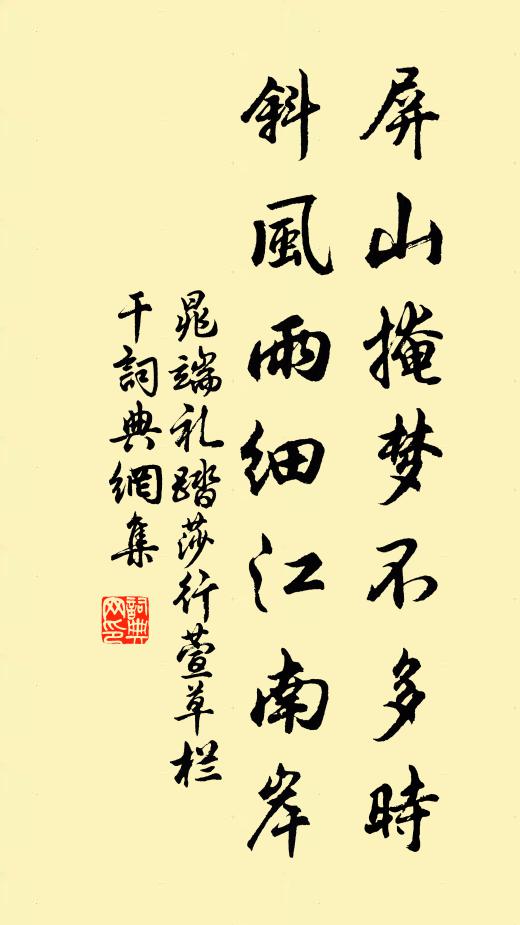 屏山掩梦不多時
斜風雨细江南岸
晁端礼踏莎行萱草栏
干詞典網集
詞典
网印